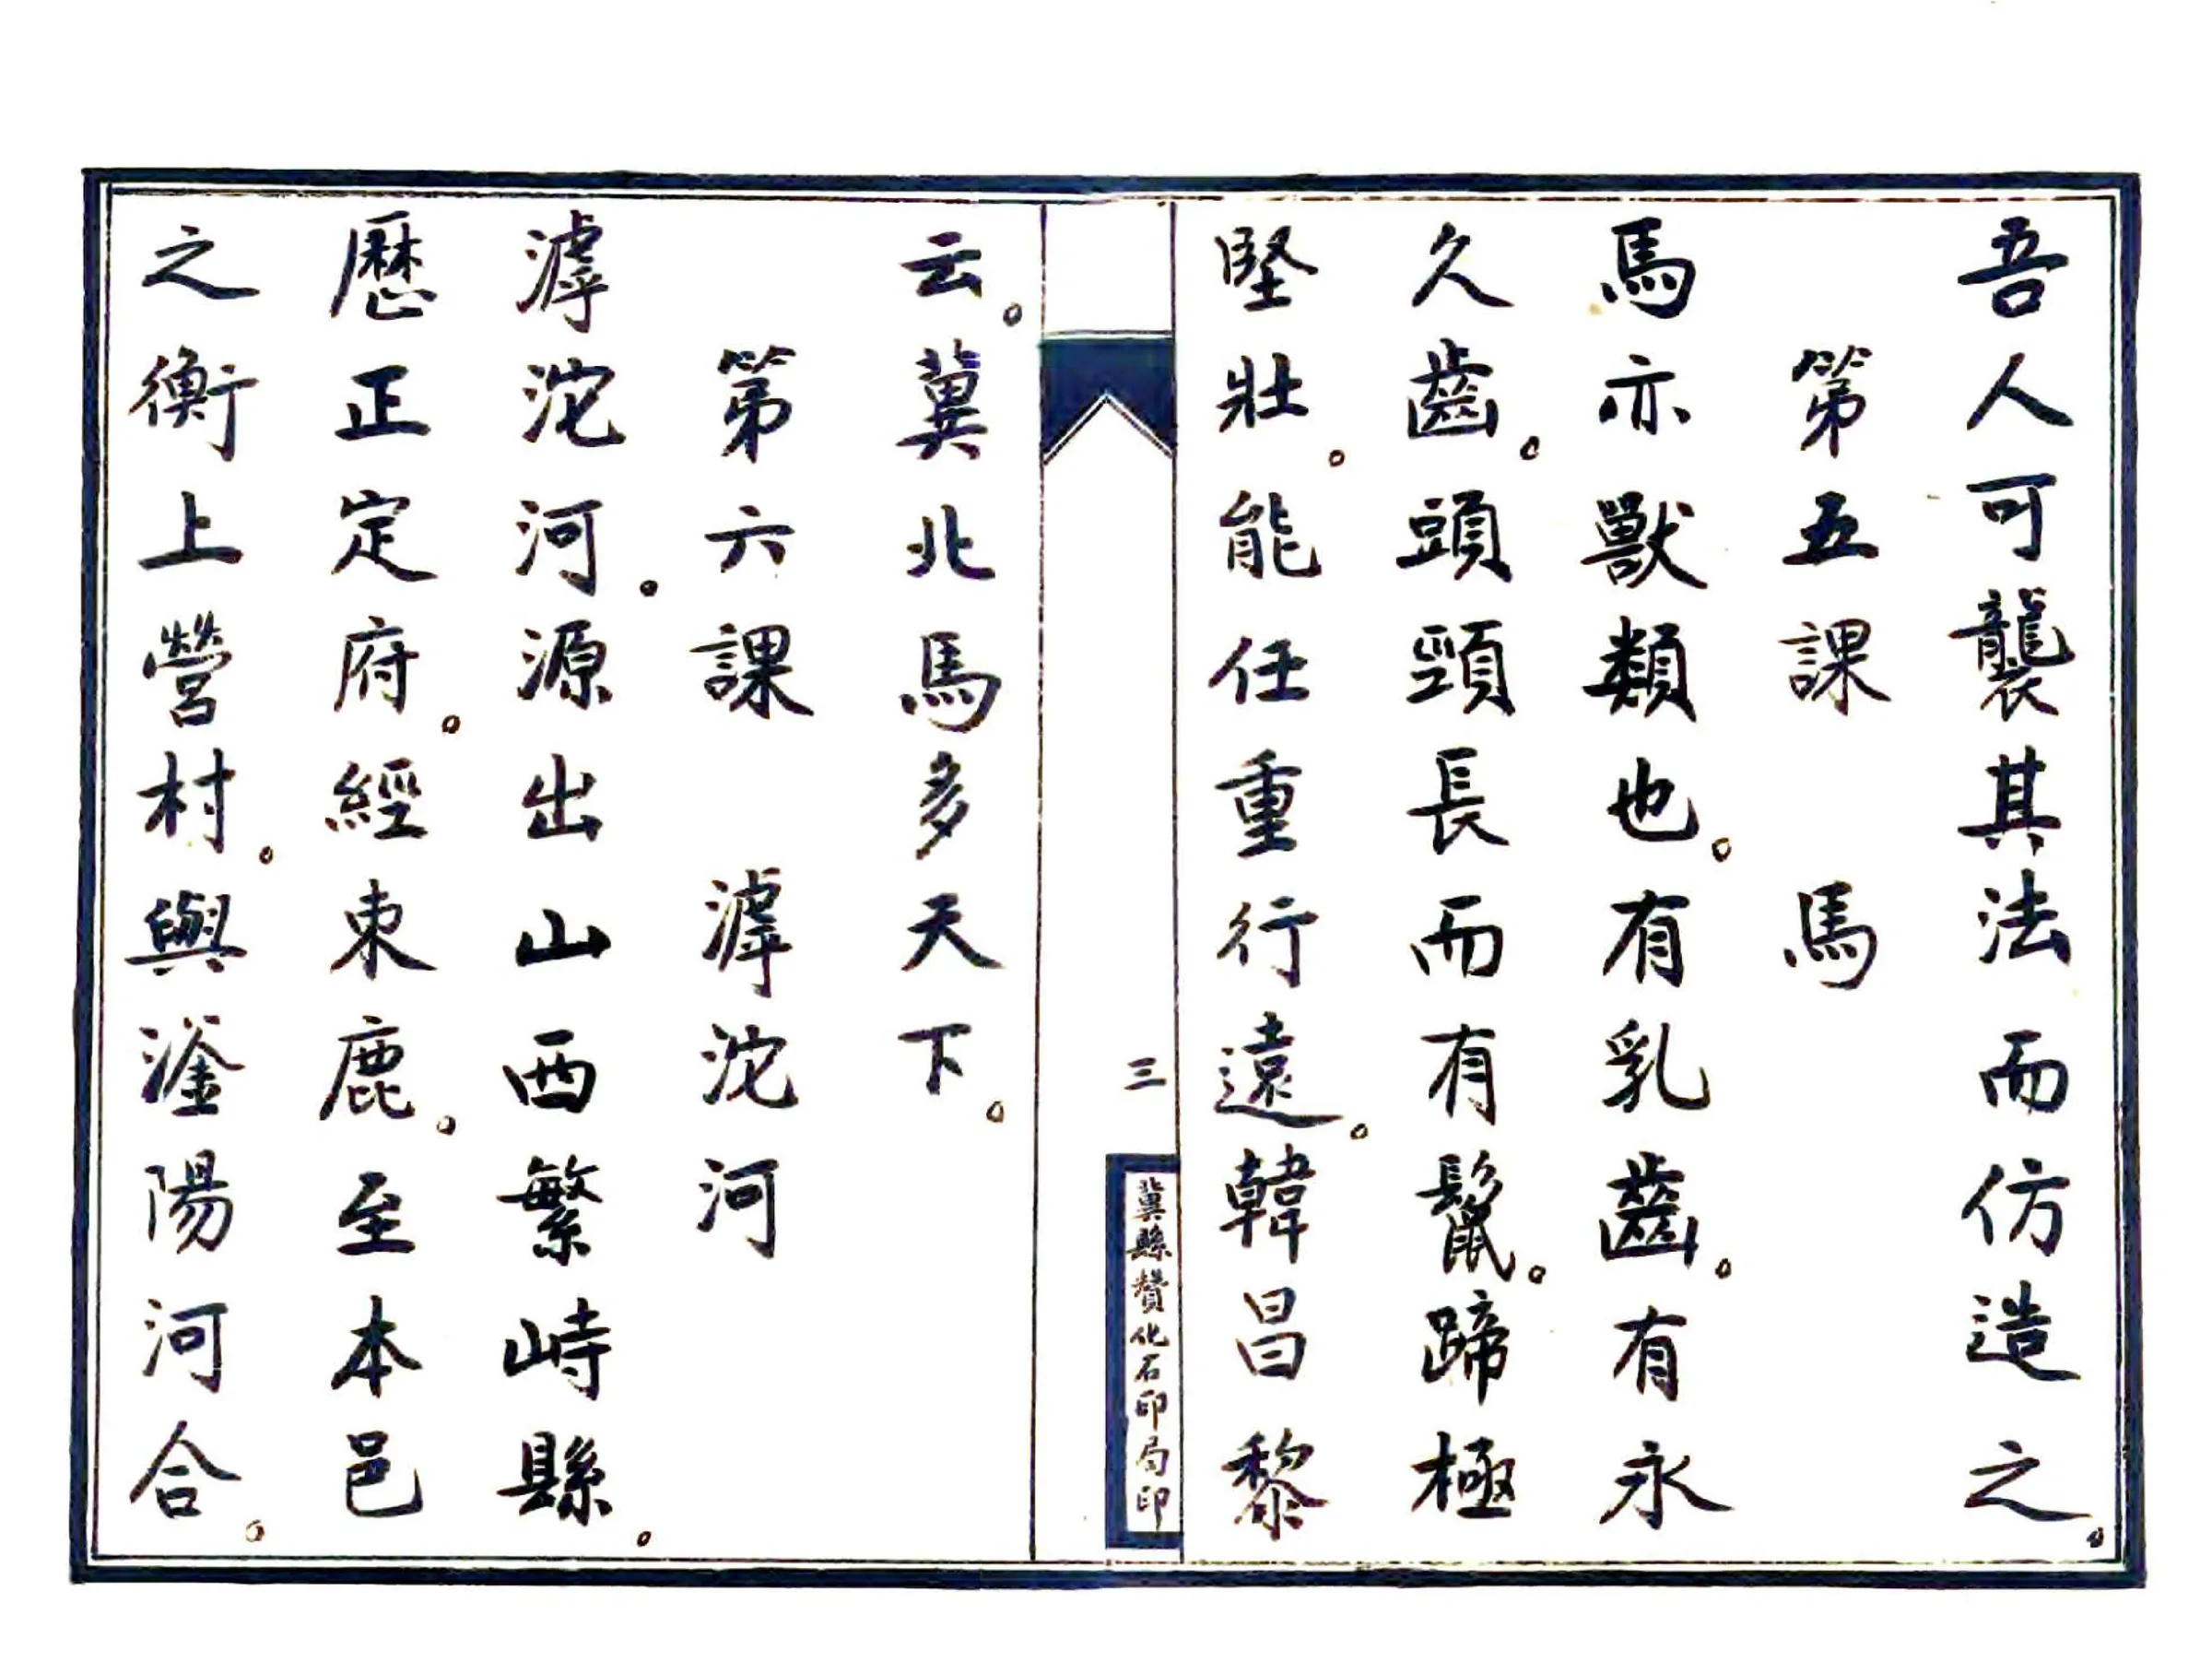 吾人可襲其法而仿造之。
第五課 馬
馬亦獸類也。有乳齒。有永
久齒。頭頸長而有鬣。蹄極
堅壯。能任重行遠。韓昌黎
三
冀縣贊化石印局印
云。冀北馬多天下。
第六課 滹沱河
滹沱河。源出山西繁峙縣。
歷正定府。經束鹿。至本邑
之衡上營村。與滏陽河合。